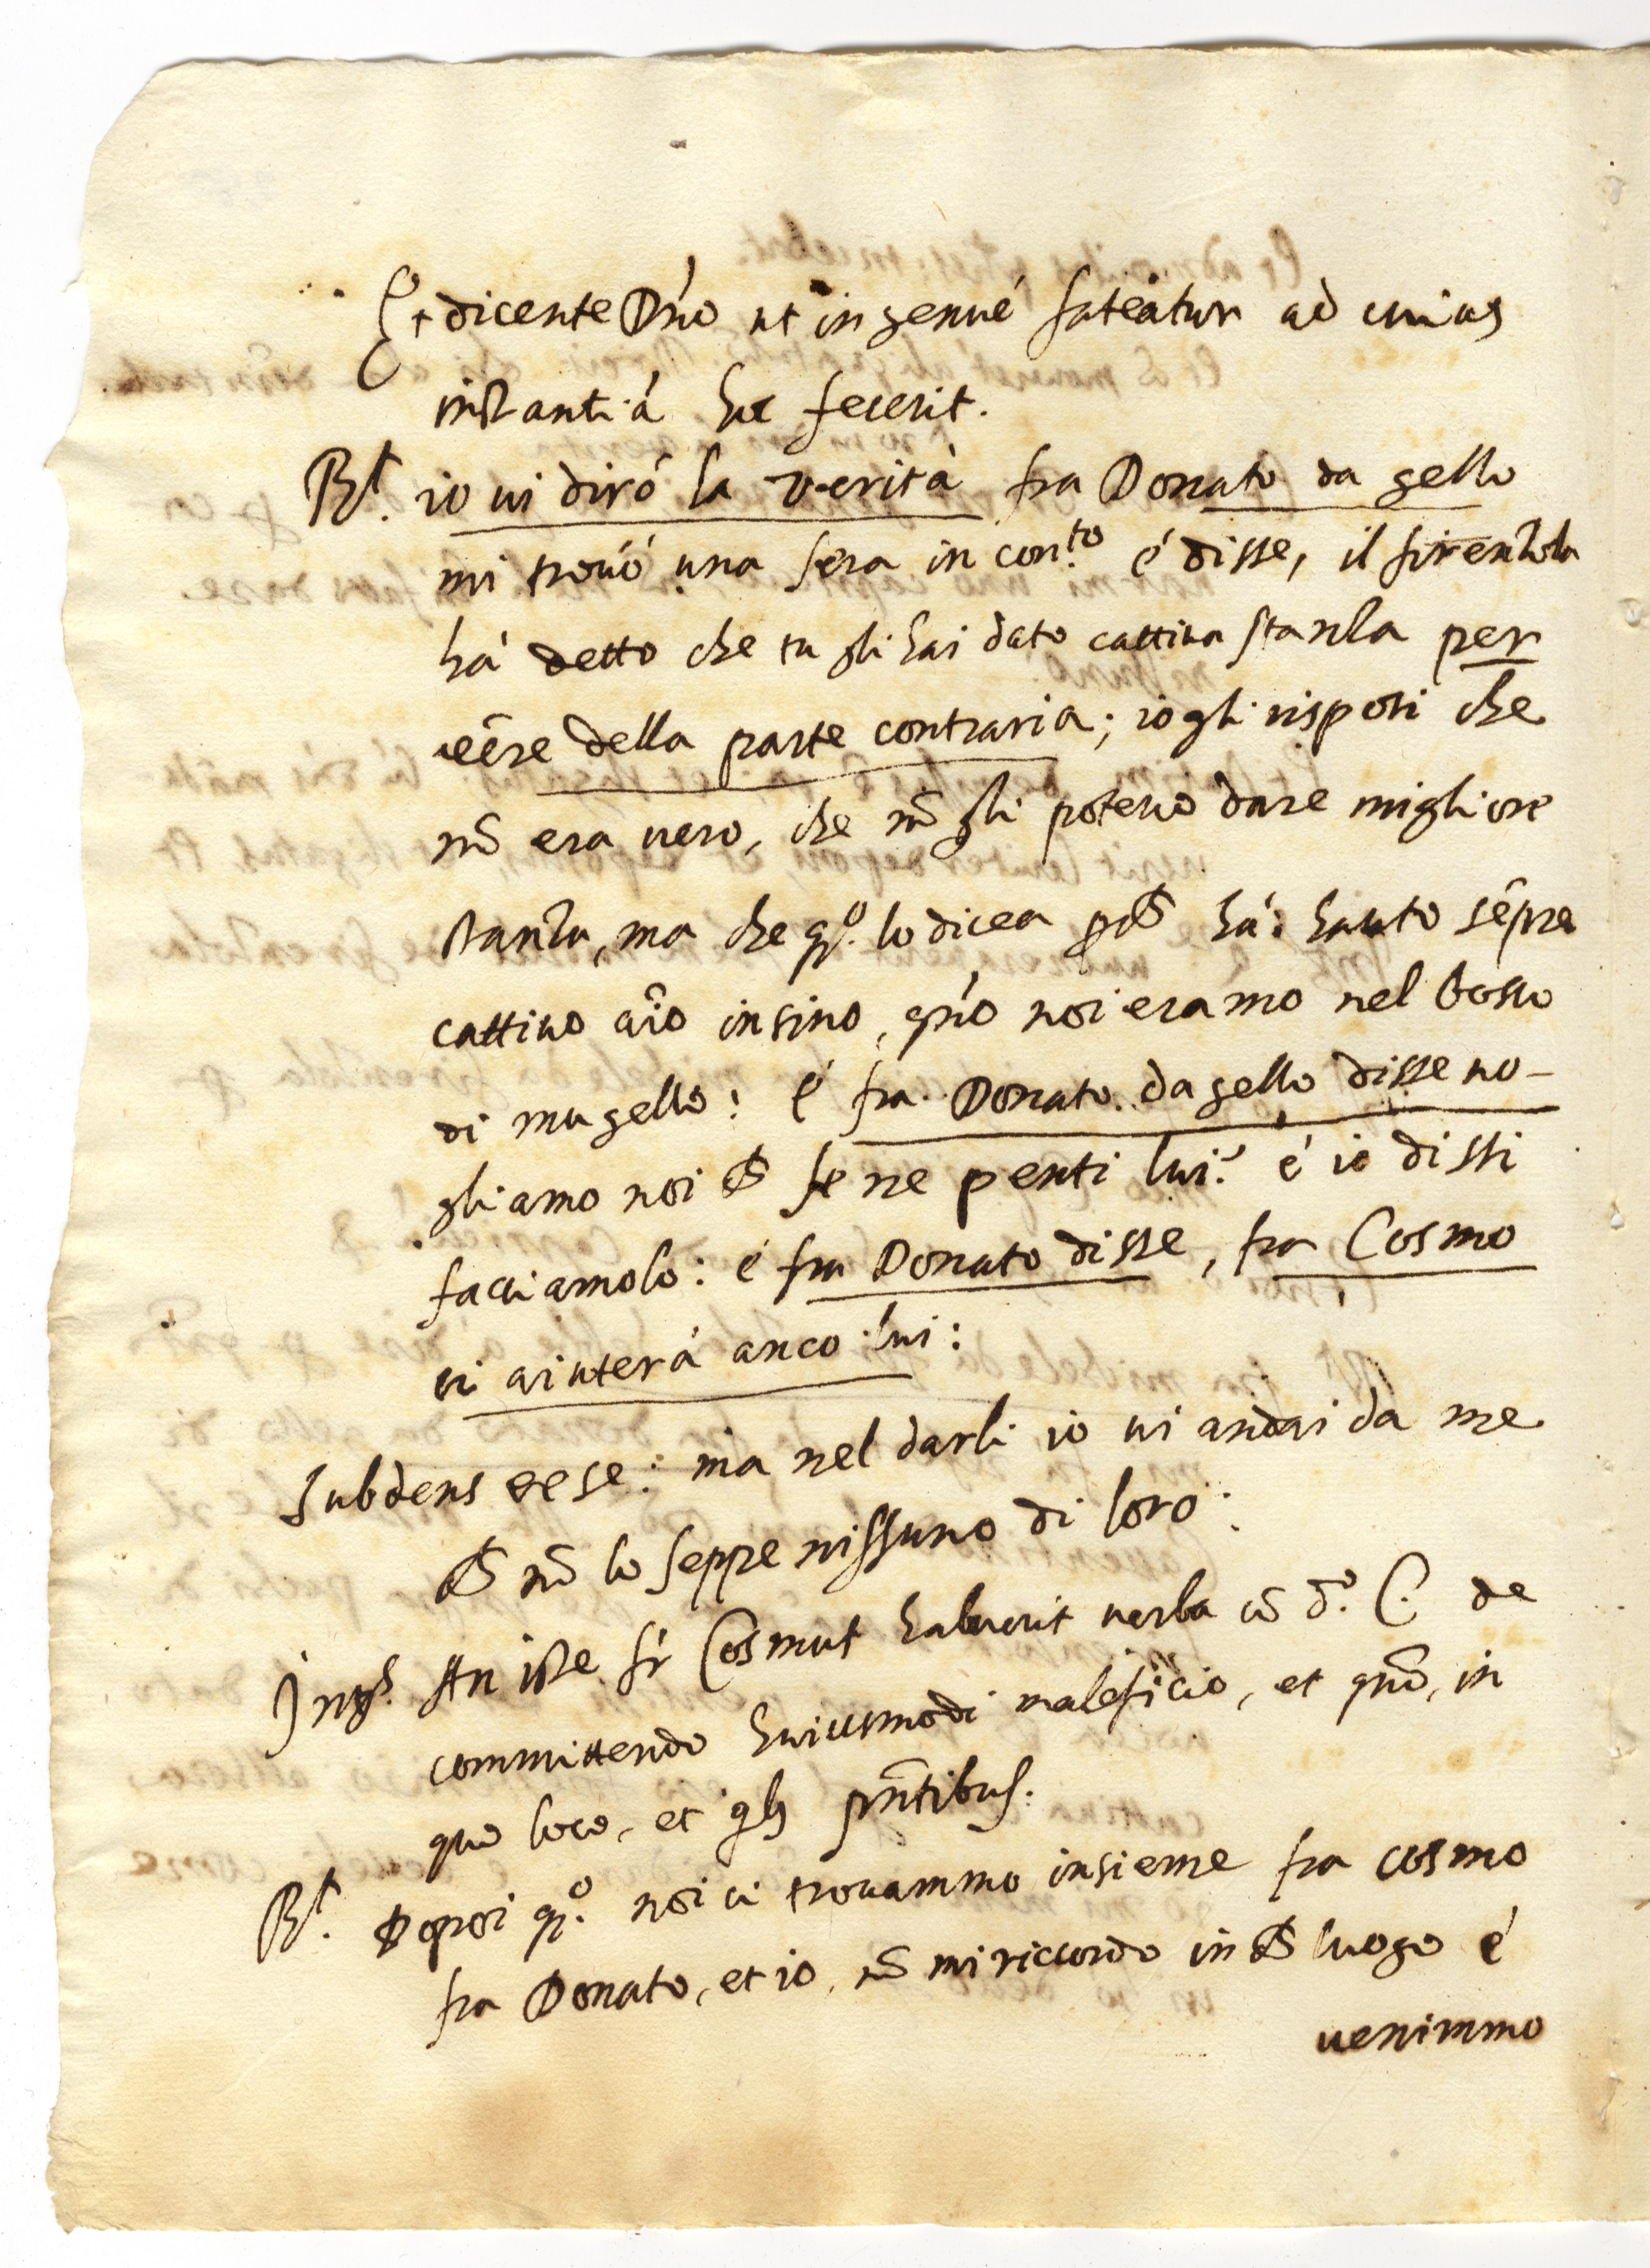 Et dicente Dńo ut ingenué fateatur ad cuius
instantiá hec fecerit.
Rt. io ui diró la verità fra Donato da gello
mi trouó una sera in con.to é disse, il firenzola
há detto che tu gli hai dato cattiva stanza per
eêre della parte contraria; io gli risposi che
nō era uero, che nō gli poteuo dare migliore
stanza, ma che q.o lo dicea há hauto sêpre
cattiuo aîo insino, qńo noi eramo nel bosco
di mugello: é fra Donato da gello disse uo-
gliamo noi se ne penti lui? é io dissi
facciamolo: é fra Donato disse, fra Cosmo
ci aiuterá anco lui:
subdens ex se: ma nel darli io ui andai da me
nō lo seppe nissuno di loro:
Ings. An iste fr Cosmus habuerit uerba cū d.o C. de
committendo huiusmodi maleficio, et qnō, in
quo loco, et pńtibus:
Rt. Dopoi q.o noi ci trouammo insieme fra cosmo
fra Donato, et io, nō mi riccordo in luogo é
uenimmo